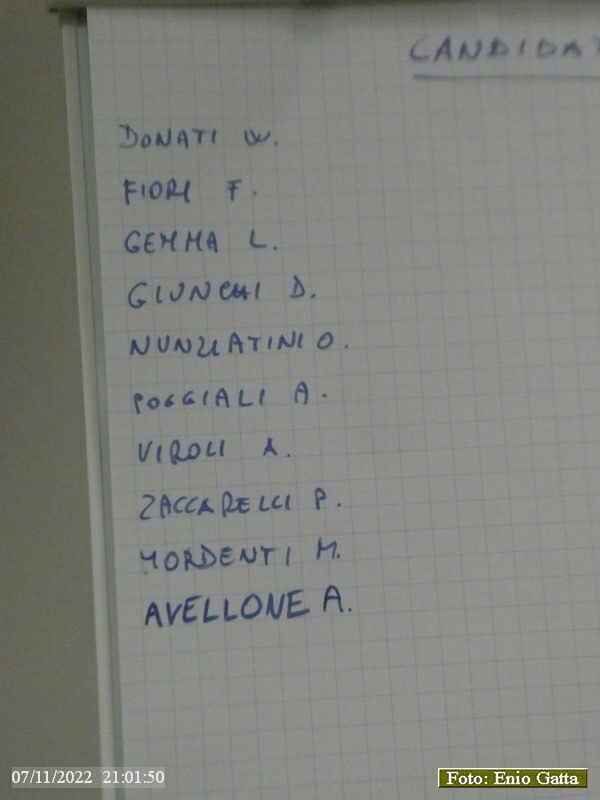 CANDIDAT
DONATI W.
FIORI F.
GEMMA L.
GIUNCHI D.
NUNZIATINI O.
POGGIALI A.
VIROLI A.
ZACCARELLI P.
MORDENTI M.
AVELLONE A.
07/11/2022 21:01:50
Foto: Enio Gatta